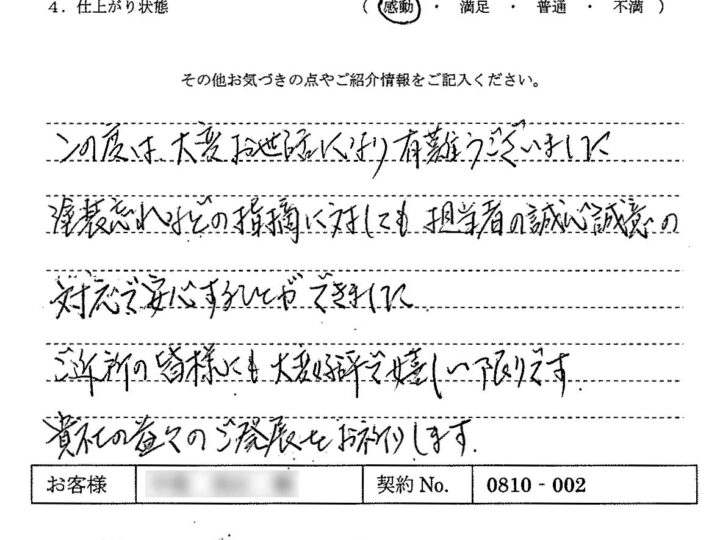 4．仕上がり状態 （ 感動 ・ 満足 ・ 普通 ・ 不満 ）
その他お気づきの点やご紹介情報をご記入ください。
この度は、大変お世話になり有難うございました
塗装忘れなどの指摘に対しても担当者の誠心誠意の
対応で安心することができました
ご近所の皆様にも大変好評で嬉しい限りです.
貴社の益々のご発展をお祈りします.
お客様 契約 No. 0810 - 002